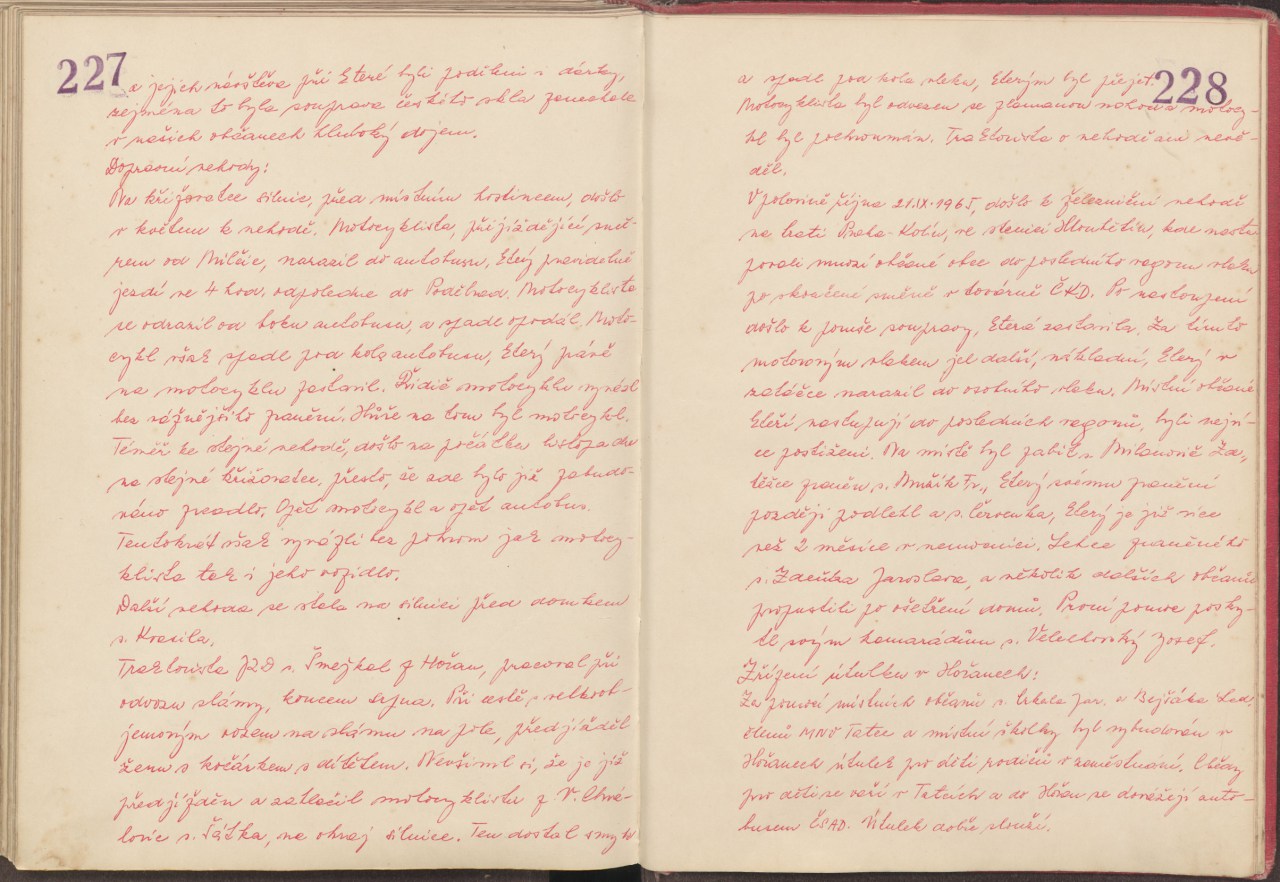 227
a jejich návštěva při které byli poděleni i dárky,
zejména to byla souprava českého skla zanechala
v našich občanech hluboký dojem.
Dopravní nehody:
Na křižovatce silnic, před místním hostincem, došlo
v květnu k nehodě. Motocyklista, přijíždějící smě-
rem od Milčic, narazil do autobusu, který pravidelně
jezdí ve 4 hod. odpoledne do Poděbrad. Motocyklista
se odrazil od boku autobusu, a spadl opodál. Moto-
cykl však spadl pod kola autobusu, který právě
na motocyklu zastavil. Řidič motocyklu vyvázl
bez vážnějšího zranění. Hůře na tom byl motocykl.
Téměř ke stejné nehodě, došlo na počátku listopadu
na stejné křižovatce, přesto, že zde bylo již zabudo-
váno zrcadlo. Opět motocykl a opět autobus.
Tentokrát však vyvázli bez pohrom jak motocy-
klista tak i jeho vozidlo.
Další nehoda se stala na silnici před domkem
s. Kvasila.
Traktorista JZD s. Šmejkal z Hořan, pracoval při
odvozu slámy, koncem srpna. Při cestě s velkoob-
jemovým vozem na slámu na pole, předjížděl
ženu s kočárkem s dítětem. Nevšiml si, že je již
předjížděn a zatlačil motocyklistu z V. Chvá-
lovic s. Šátka, na okraj silnice. Ten dostal smyk
228
a spadl pod kola vleku, kterým byl přejet.
Motocyklista byl odvezen se zlámanou nohou a motocy-
kl byl pochroumán. Traktorista o nehodě ani nevě-
děl.
V polovině října 21.IX.1965, došlo k železniční nehodě
na trati Praha-Kolín, ve stanici Hloubětín, kde nastu
povali mnozí občané obce do posledního vagonu vlaku
po skončené směně v továrně ČKD. Po nastoupení
došlo k poruše soupravy, která zastavila. Za tímto
motorovým vlakem jel další, nákladní, který v
zatáčce narazil do osobního vlaku. Místní občané
kteří nastupují do posledních vagonů, byli nejví-
ce postiženi. Na místě byl zabit s. Milanovič Ža.,
těžce zraněn s. Mužík Fr., který svému zranění
později podlehl a s. Červenka, který je již více
než 2 měsíce v nemocnici. Lehce zraněného
s. Zdeňka Jaroslava, a několik dalších občanů
propustili po ošetření domů. První pomoc posky-
tl svým kamarádům s. Velechovský Josef.
Zřízení útulku v Hořanech:
Za pomoci místních občanů s. Cukala Jar. a Bejčáka Lad.
členů MNV Tatce a místní školky byl vybudován v
Hořanech útulek pro děti rodičů v zaměstnání. Obědy
pro děti se vaří v Tatcích a do Hořan se dovážejí auto-
busem ČSAD. Útulek dobře slouží.